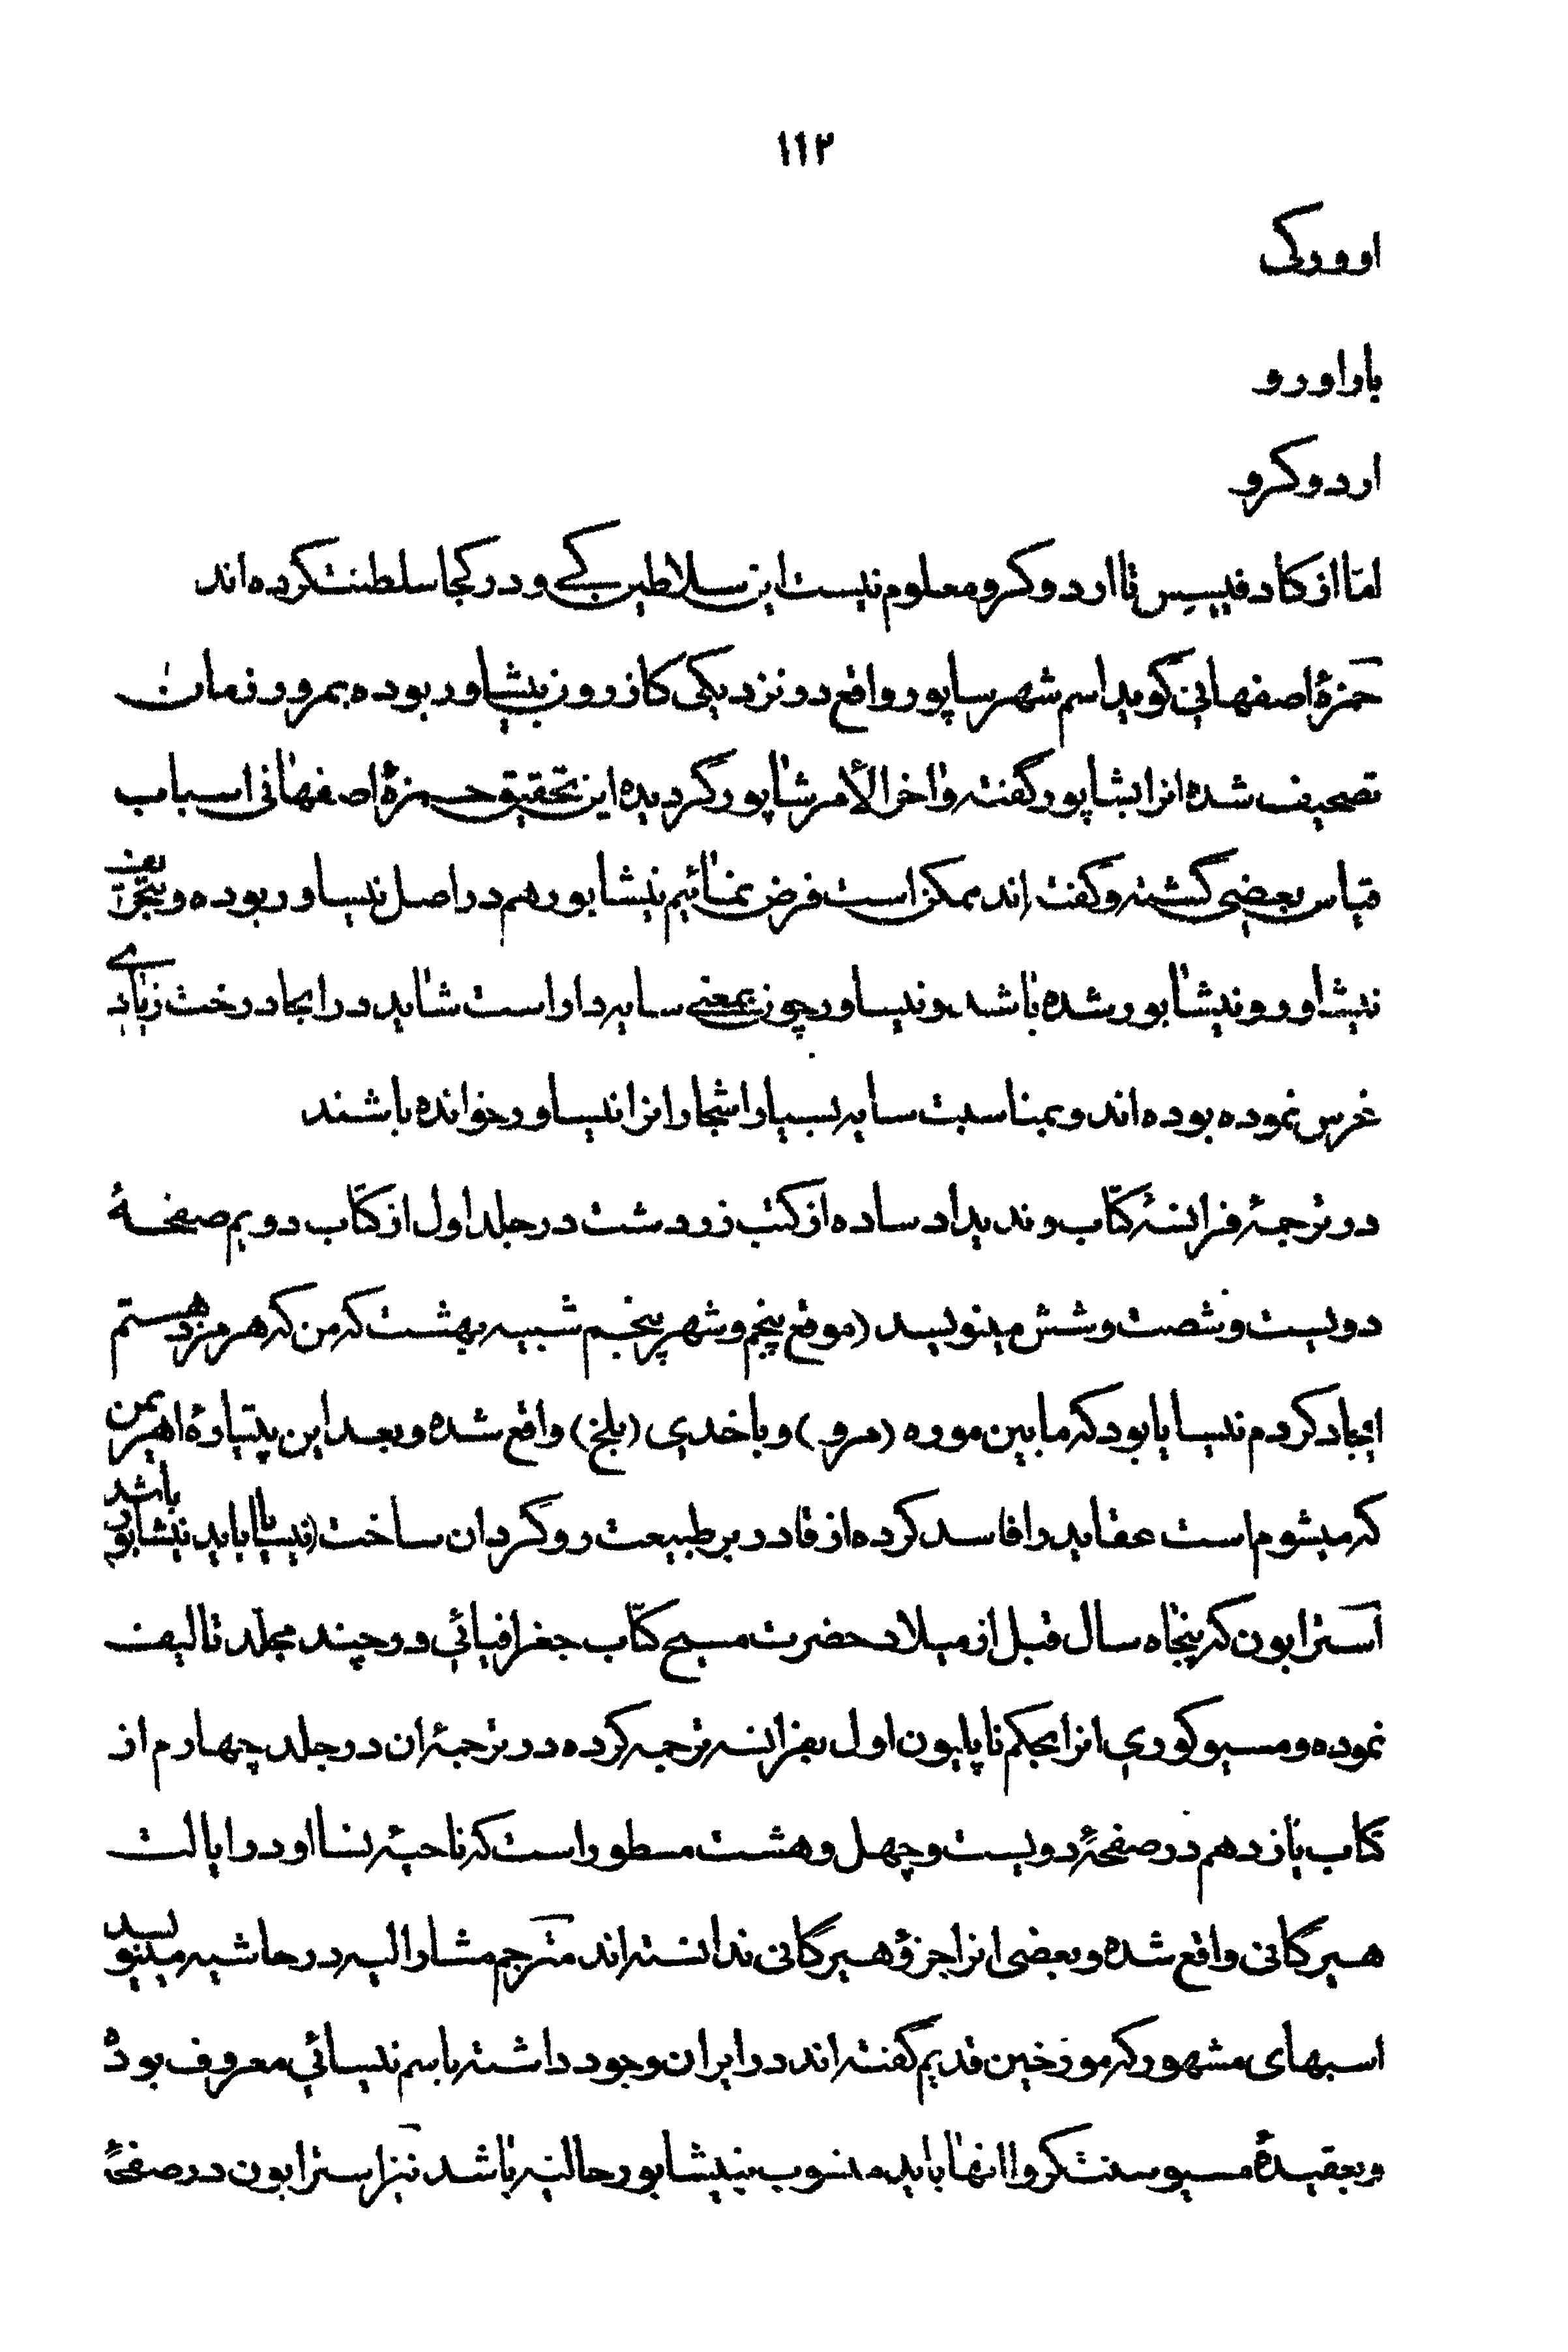 ۱۱۲
اوورکی
باراورو
اردوکرو
امّا از کادفیسیس تا اردوکرو معلوم نیست این سلاطین کے و در کجا سلطنت کرده‌اند
حمزهٔ اصفهانی گوید اسم شهر ساپور واقع در نزدیکی کازرون بیشاور بوده بمرور زمان
تصحیف شده انرا بشاپور گفته و اخر الأمر شاپور گردیده این تحقیق حمزهٔ اصفهانی اسباب
قیاس بعضی گشته و گفته اند ممکن است فرض نمائیم نیشابور هم در اصل نیساور بوده و بتحریف
نیشاور و نیشابور شده باشد و نیساور چون بمعنی سایه‌دار است شاید در انجا درخت زیادے
غرس نموده بوده‌اند و بمناسبت سایه بسیار اشجار انرا نیساور خوانده باشند
در ترجمهٔ فرانسهٔ کتاب وندیداد ساده از کتب زردشت در جلد اول از کتاب دویم صفحهٔ
دویست و شصت و شش مینویسد (موقع پنجم و شهر پنجم شبیه ببهشت که من که هرمزد هستم
ایجاد کردم نیسایا بود که مابین موره (مرو) و باخدی (بلخ) واقع شده و بعد این پتیارهٔ اهریمن
که میشوم است عقاید را فاسد کرده از قادر بر طبیعت روگردان ساخت (نیسایا باید نیشابور باشد
آسترابون که پنجاه سال قبل از میلاد حضرت مسیح کتاب جغرافیائی در چند مجلّد تالیف
نموده و مسیو کوری انرا بحکم ناپلیون اول بفرانسه ترجمه کرده در ترجمهٔ ان در جلد چهارم از
کتاب یازدهم در صفحهٔ دویست و چهل و هشت مسطور است که ناحیهٔ نسا اودر ایالت
هیرکانی واقع شده و بعضی انرا جزؤ هیرکانی ندانسته‌اند مترجم مشارالیه در حاشیه مینویسد
اسبهای مشهور که مورخین قدیم گفته‌اند در ایران وجود داشته باسم نیسائی معروف بوده
و بعقیدهٔ مسیو سنت کروا انها باید منسوب بنیشابور حالیه باشد نیز استرابون در صفحهٔ